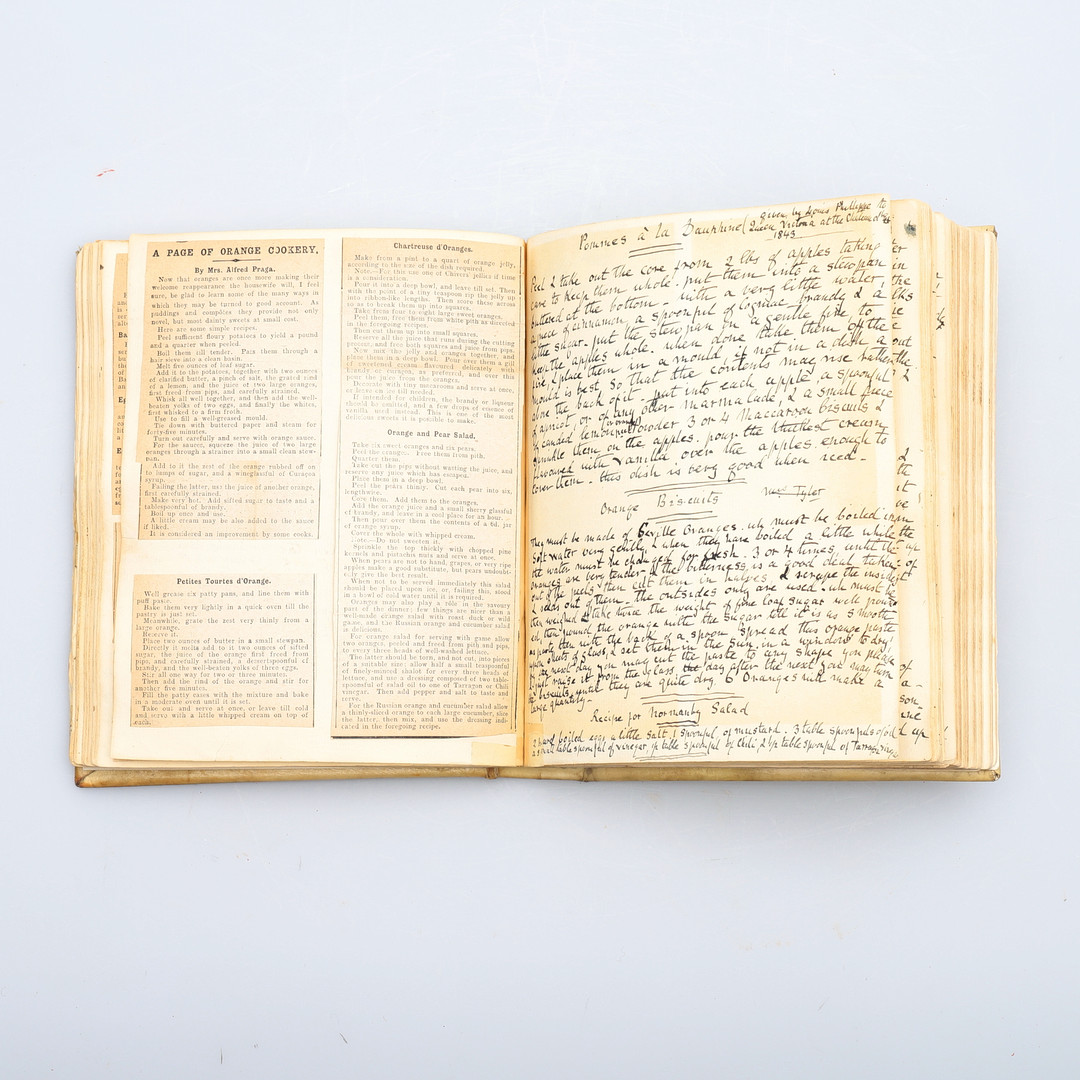 A PAGE OF ORANGE COOKERY.
By Mrs. Alfred Praga.
Now that oranges are once more making their
welcome reappearance the housewife will, I feel
sure, be glad to learn some of the many ways in
which they may be turned to good account. As
puddings and compôtes they provide not only
novel, but most dainty sweets at small cost.
Here are some simple recipes.
Peel sufficient floury potatoes to yield a pound
and a quarter when peeled.
Boil them till tender. Pass them through a
hair sieve into a clean basin.
Melt five ounces of loaf sugar.
Add it to the potatoes, together with two ounces
of clarified butter, a pinch of salt, the grated rind
of a lemon, and the juice of two large oranges,
first freed from pips, and carefully strained.
Whisk all well together, and then add the well-
beaten yolks of two eggs, and finally the whites,
first whisked to a firm froth.
Use to fill a well-greased mould.
Tie down with buttered paper and steam for
forty-five minutes.
Turn out carefully and serve with orange sauce.
For the sauce, squeeze the juice of two large
oranges through a strainer into a small clean stew-
pan.
Add to it the zest of the orange rubbed off on
to lumps of sugar, and a wineglassful of Curaçoa
syrup.
Failing the latter, use the juice of another orange,
first carefully strained.
Make very hot. Add sifted sugar to taste and a
tablespoonful of brandy.
Boil up once and use.
A little cream may be also added to the sauce
if liked.
It is considered an improvement by some cooks.
Petites Tourtes d'Orange.
Well grease six patty pans, and line them with
puff paste.
Bake them very lightly in a quick oven till the
pastry is just set.
Meanwhile, grate the zest very thinly from a
large orange.
Reserve it.
Place two ounces of butter in a small stewpan.
Directly it melts add to it two ounces of sifted
sugar, the juice of the orange first freed from
pips, and carefully strained, a dessertspoonful of
brandy, and the well-beaten yolks of three eggs.
Stir all one way for two or three minutes.
Then add the rind of the orange and stir for
another five minutes.
Fill the patty cases with the mixture and bake
in a moderate oven until it is set.
Take out and serve at once, or leave till cold
and serve with a little whipped cream on top of
each.
Chartreuse d'Oranges.
Make from a pint to a quart of orange jelly,
according to the size of the dish required.
Note.—For this use one of Chivers' jellies if time
is a consideration.
Pour it into a deep bowl, and leave till set. Then
with the point of a tiny teaspoon rip the jelly up
into ribbon-like lengths. Then score these across
so as to break them up into squares.
Take from four to eight large sweet oranges.
Peel them, free them from white pith as directed
in the foregoing recipes.
Then cut them up into small squares.
Reserve all the juice that runs during the cutting
process, and free both squares and juice from pips.
Now mix the jelly and oranges together, and
place them in a deep bowl. Pour over them a gill
of sweetened cream flavoured delicately with
brandy or Maraska, as preferred, and over this
pour the juice from the oranges.
Decorate with tiny macaroons and serve at once,
or leave on ice till needed.
If intended for children, the brandy or liqueur
should be omitted, and a few drops of essence of
vanilla used instead. This is one of the most
delicious sweets it is possible to make.
Orange and Pear Salad.
Take six sweet oranges and six pears.
Peel the oranges. Free them from pith.
Quarter them.
Take out the pips without wasting the juice, and
reserve any juice which has escaped.
Place them in a deep bowl.
Peel the pears thinly. Cut each pear into six,
lengthwise.
Core them. Add them to the oranges.
Add the orange juice and a small sherry glassful
of brandy, and leave in a cool place for an hour.
Then pour over them the contents of a 6d. jar
of orange syrup.
Cover the whole with whipped cream.
Note.—Do not sweeten it.
Sprinkle the top thickly with chopped pine
kernels and putachis nuts and serve at once.
When pears are not to hand, grapes, or very ripe
apples make a good substitute, but pears undoubt-
edly give the best result.
When not to be served immediately this salad
should be placed upon ice, or, failing this, stood
in a bowl of cold water until it is required.
Oranges may also play a rôle in the savoury
part of the dinner; few things are nicer than a
well-made orange salad with roast duck or wild
goose, and the Russian orange and cucumber salad
is delicious.
For orange salad for serving with game allow
two oranges, peeled and freed from pith and pips,
to every three heads of well-washed lettuce.
The latter should be torn, and not cut, into pieces
of a suitable size; allow half a small teaspoonful
of finely-minced shalot for every three heads of
lettuce, and use a dressing composed of two table-
spoonsful of salad oil to one of Tarragon or Chili
vinegar. Then add pepper and salt to taste and
serve.
For the Russian orange and cucumber salad allow
a thinly-sliced orange to each large cucumber, slice
the latter, then mix, and use the dressing indi-
cated in the foregoing recipe.
Pommes à la Dauphine (given by Louis Phillippe to
Queen Victoria at the Chateau d'Eu
1843
Peel & take out the core from 2 lbs of apples taking
care to keep them whole. put them into a stewpan
buttered at the bottom - with a very little water,
a piece of cinnamon, a spoonful of Cognac brandy, & a
little sugar. put the stewpan on a gentle fire to
keep the apples whole. when done take them off the
fire, & place them in a mould, if not in a dish a
mould is best, so that the contents may rise rather
above the back of it - put into each apple, a spoonful
of apricot, or of any other marmalade, & a small piece
of candied lemon (or orange) powder 3 or 4 maccaroon biscuits &
sprinkle them on the apples. pour the thickest cream
flavoured with vanilla over the apples, enough to
cover them - this dish is very good when iced -
Orange Biscuits Miss Tyler
They must be made of Seville Oranges. wh must be boiled in
soft water very gently, & when they have boiled a little while
the water must be changed for fresh. 3 or 4 times, until the
oranges are very tender & the bitterness, is a good deal taken
out of the peel, then cut them in halves & scrape the inside
& seeds out of them - the outsides only are used - wh must be
then weighed & take twice the weight of fine loaf sugar well pound
ed, then pound the orange with the sugar till it is as smooth
as paste, then with the back of a spoon spread this orange paste
upon sheets of glass, & set them in the sun, in a window to dry
the next day you may cut the paste to any shape you please
& just raise it from the glass the day after the next you may turn
the biscuits, until they are quite dry 6 Oranges will make a
large quantity -
Recipe for Normanby Salad
2 hard boiled eggs a little salt, 1 spoonful of mustard. 3 table spoonfuls of oil
a small table spoonful of vinegar, ½ table spoonful of Chili & ½ table spoonful of Tarragon